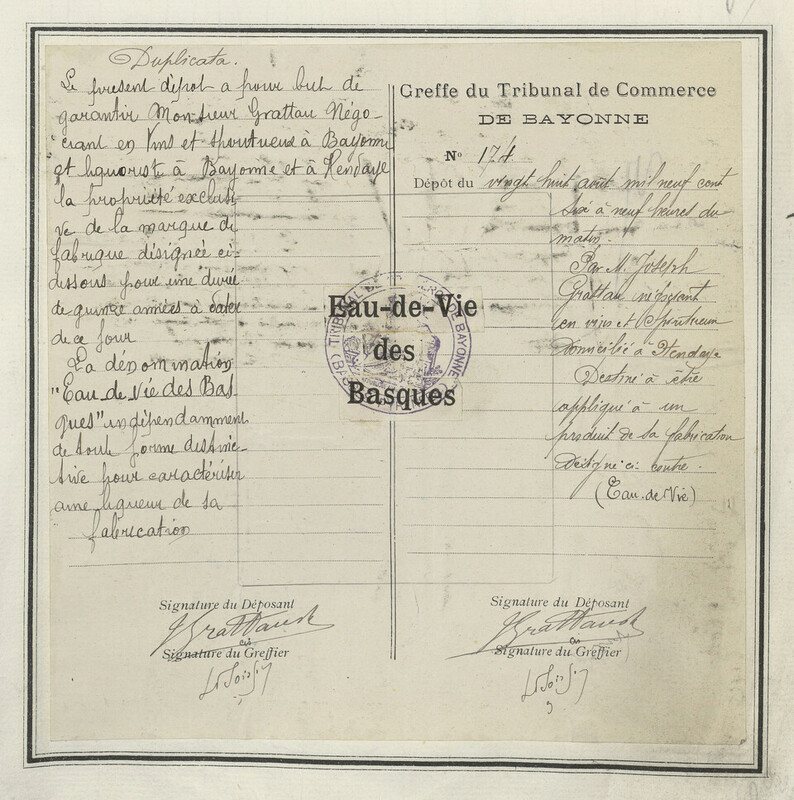 Duplicata.
Le present dépot a pour but de
garantir Monsieur Grattau Négo-
ciant en Vins et Spiritueux à Bayonne
et liquoriste à Bayonne et à Hendaye
la propriété exclusi
ve de la marque de
fabrique désignée ci-
dessous pour une durée
de quinze années à dater
de ce jour
La dénomination
"Eau de Vie des Bas
ques" indépendamment
de toute forme distinc-
tive pour caractériser
une liqueur de sa
fabrication
Signature du Déposant
Grattau
Signature du Greffier
Eau-de-Vie
des
Basques
TRIBUNAL DE COMMERCE DE BAYONNE
Greffe du Tribunal de Commerce
DE BAYONNE
No 174
Dépôt du vingt huit août mil neuf cent
six à neuf heures du
matin.
Par M. Joseph
Grattau négociant
en vins et Spiritueux
Domicilié à Hendaye
Destiné à être
appliqué à un
produit de sa fabrication
Désigné ci contre.
(Eau.de.Vie)
Signature du Déposant
Grattau
Signature du Greffier